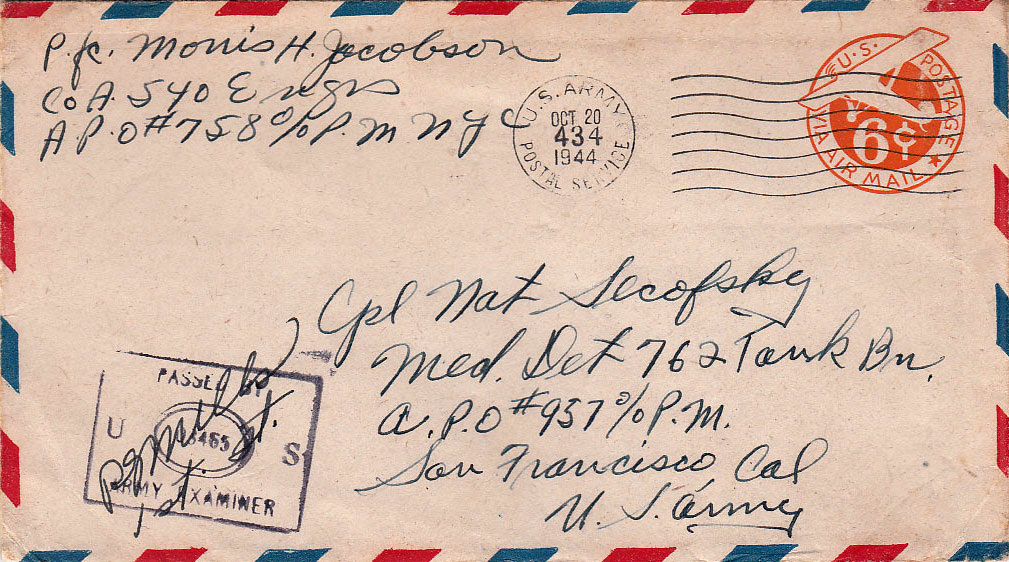 P.fc. Morris H. Jacobson
Co A. 540 Engrs
A.P.O # 758 c/o P.M. N Y C
U.S. ARMY
OCT 20
434
1944
POSTAL SERVICE
U.S. POSTAGE
6¢
VIA AIR MAIL
Cpl Nat Secofsky
Med. Det 762 Tank Bn.
A.P.O # 937 c/o P.M.
San Francisco Cal
U. S. Army
PASSED BY
U S
ARMY EXAMINER
1st. Lt.